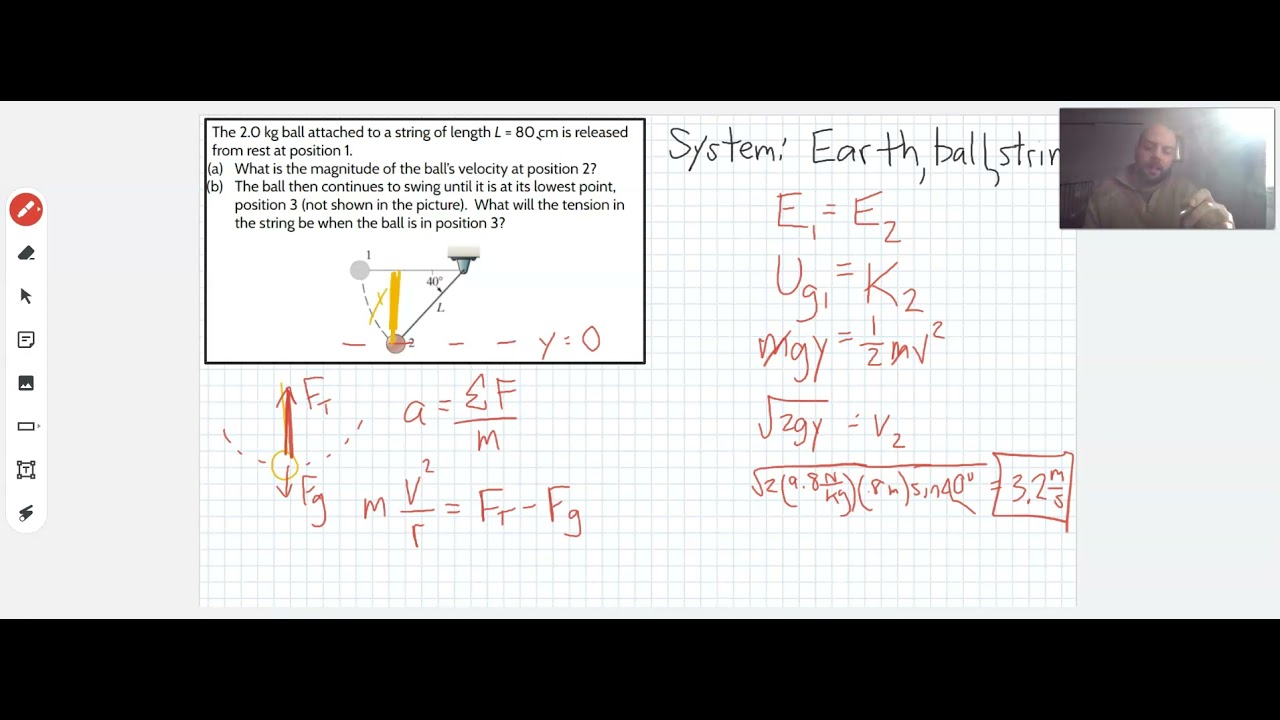 The 2.0 kg ball attached to a string of length L = 80 cm is released
from rest at position 1.
(a) What is the magnitude of the ball's velocity at position 2?
(b) The ball then continues to swing until it is at its lowest point,
position 3 (not shown in the picture). What will the tension in
the string be when the ball is in position 3?
1
40°
L
2
y = 0
System: Earth, ball, strin
E₁ = E₂
Ug₁ = K₂
mgy = 1/2 mv²
√2gy = V₂
√2(9.8 N/kg)(.8m) sin40° = 3.2 m/s
F_T
Fg
a = ΣF/m
m v²/r = F_T - Fg